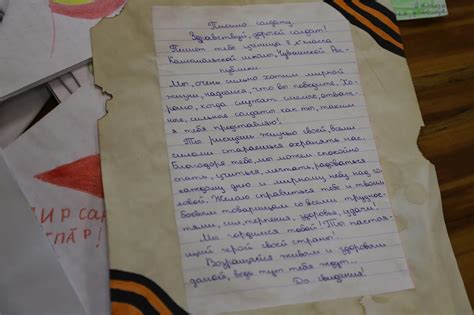 Письмо солдату
Здравствуй, дорогой солдат!
Пишет тебе ученица 8 "х" класса
школы, Чувашской Рес-
публики.
Мы, очень сильно хотим мирной
жизни, надеемся, что вы победите. Хо-
рошо, когда служат смелые, отваж-
ные, сильные солдаты как ты, таким
я тебя представляю!
Ты рискуешь жизнью своей, всеми
силами стараешься охранять нас.
Благодаря тебе, мы можем спокойно
спать, учиться, мечтать, радоваться
каждому дню и мирному небу над го-
ловой. Желаю справиться тебе и твоим
боевым товарищам со всеми труднос-
тями, сил, терпения, здоровья, удачи!
Мы гордимся тобой! Ты настоя-
щий герой своей страны!
Возвращайся живым и здоровым
домой, ведь тут тебя ждут...
До свидания!
МИР